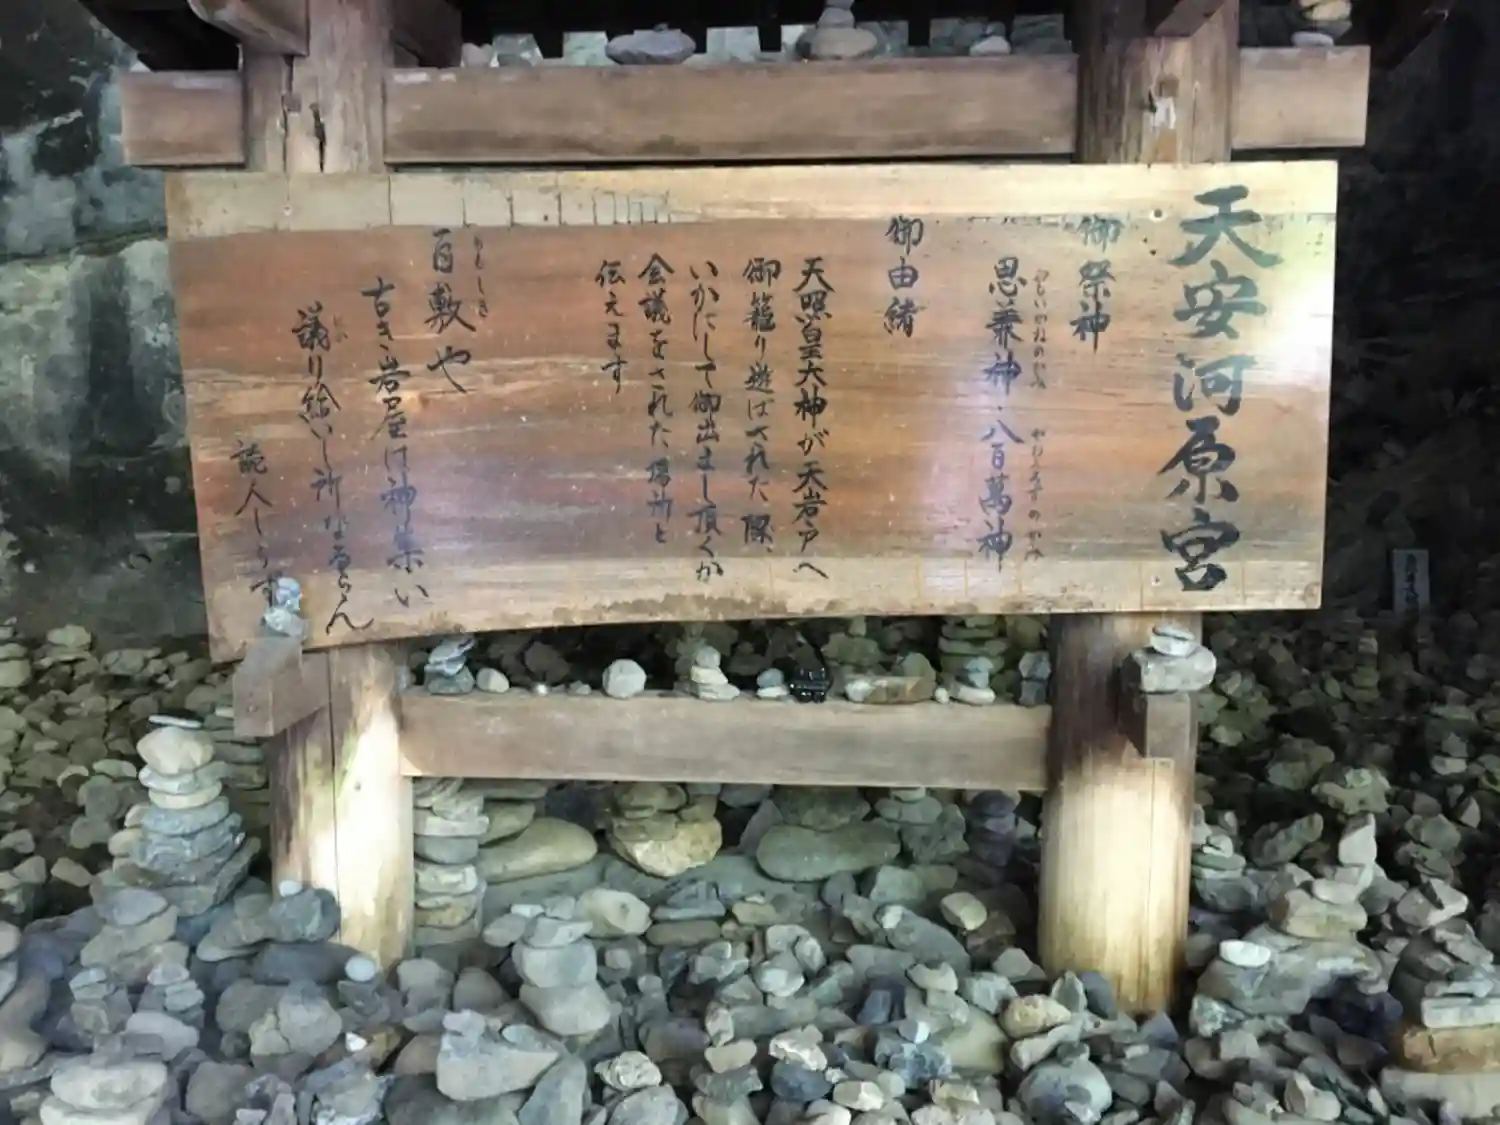 天安河原宮
御祭神
思兼神・八百萬神
おもいかねのかみ
やおよろずのかみ
御由緒
天照皇大神が天岩戸へ
御籠り遊ばされた際、
いかにして御出まし頂くか
会議をされた場所と
伝えます
百敷や
ももしき
古き岩屋は神集い
議り給いし所なるらん
はか
詠人しらず